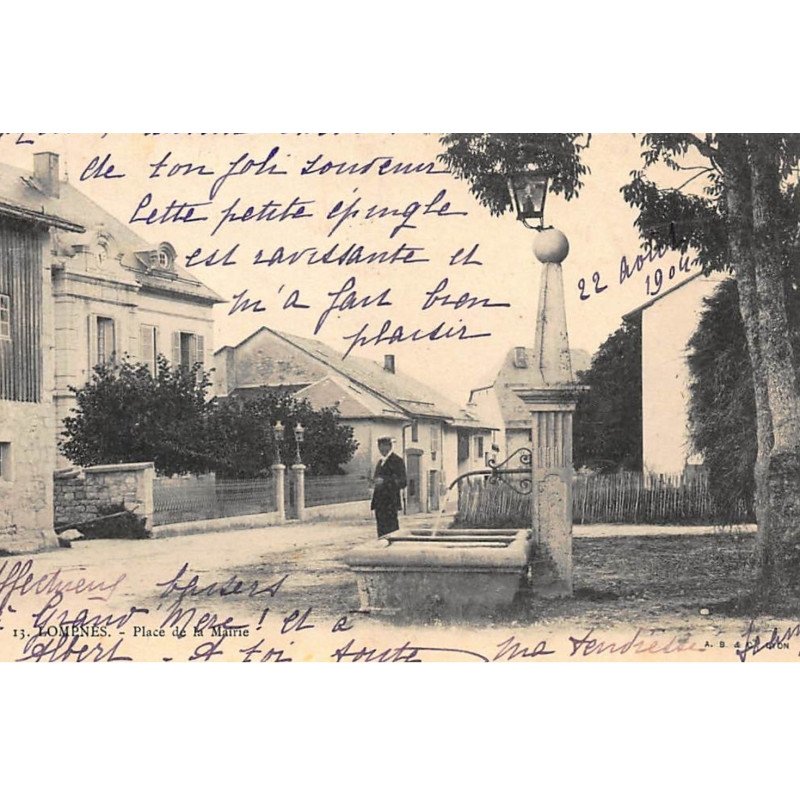 de ton joli souvenir
Cette petite épingle
est ravissante et
m'a fait bien
plaisir
22 août
1904
affectueux baisers
à Grand'Mère! et à
Albert - A toi toute ma tendresse
13. LOMPNÈS. - Place de la Mairie
A. B. & C. LYON